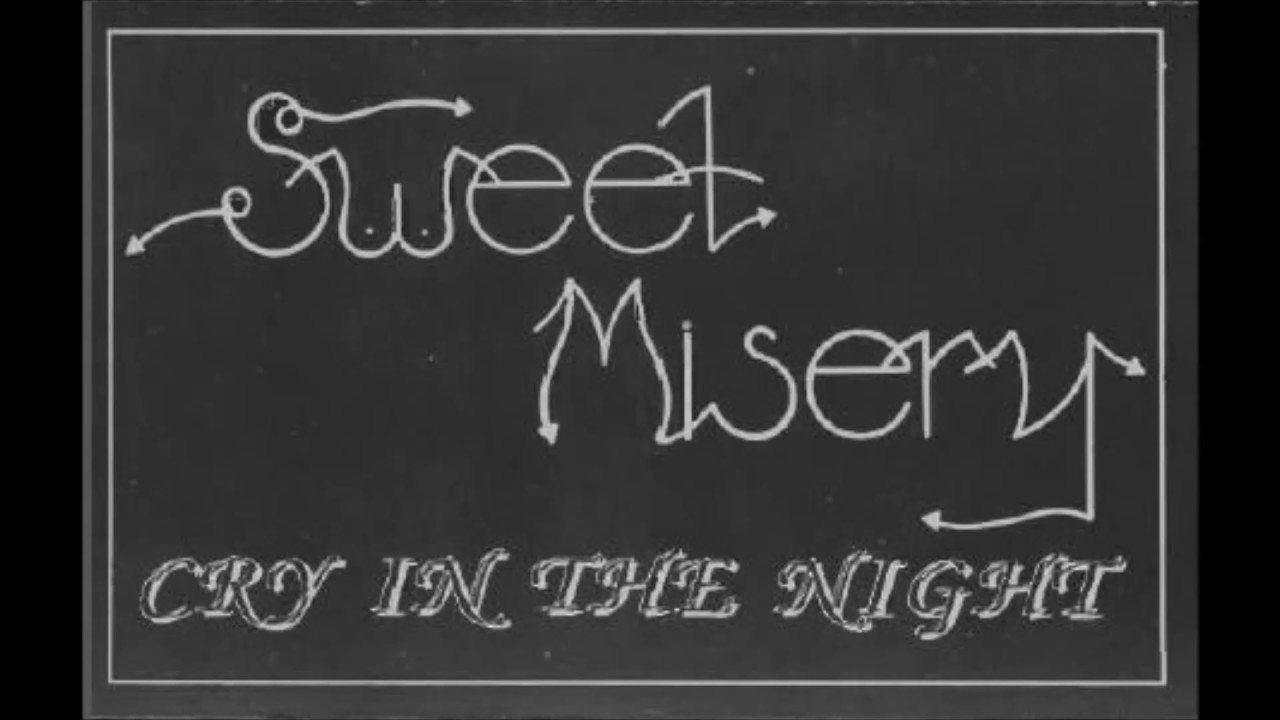 Sweet
Misery
CRY IN THE NIGHT